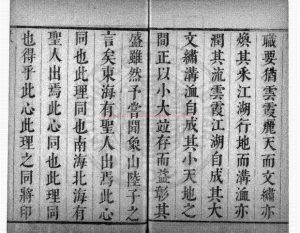 職要猶雲霞麗天而文繡亦
煥其采江湖行地而溝洫亦
潤其流雲霞江湖自成其大
文繡溝洫自成其小天地之
間正以小大竝存而益彰其
盛雖然予嘗聞象山陸子之
言矣東海有聖人出焉此心
同也此理同也南海北海有
聖人出焉此心同也此理同
也得乎此心此理之同將印